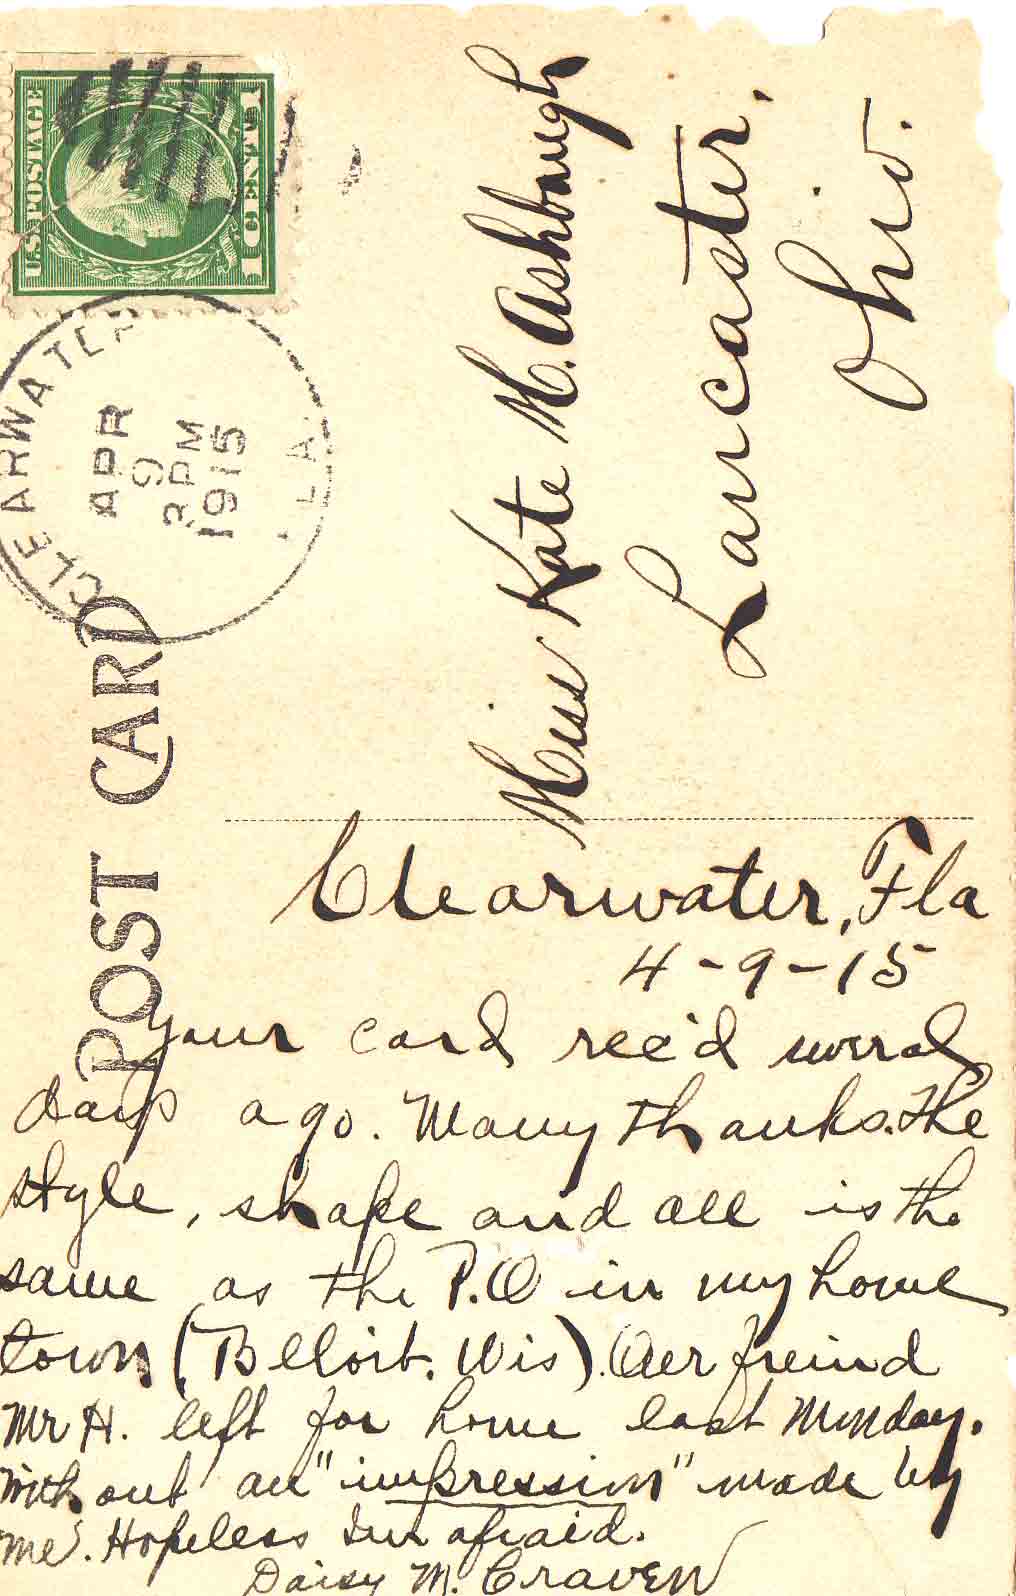 U.S. POSTAGE
1 CENT 1
CLEARWATER
FLA.
APR
9
3 PM
1915
POST CARD
Miss Kate M. Ashbaugh
Lancaster,
Ohio.
Clearwater, Fla
4-9-15
Your card rec'd several
days ago. Many thanks. The
style, shape and all is the
same as the P.O in my home
town (Belloit, Wis). Our freind
Mr H. left for home last Monday.
With out an "impression" made by
me. Hopeless I'm afraid.
Daisy M. Craven